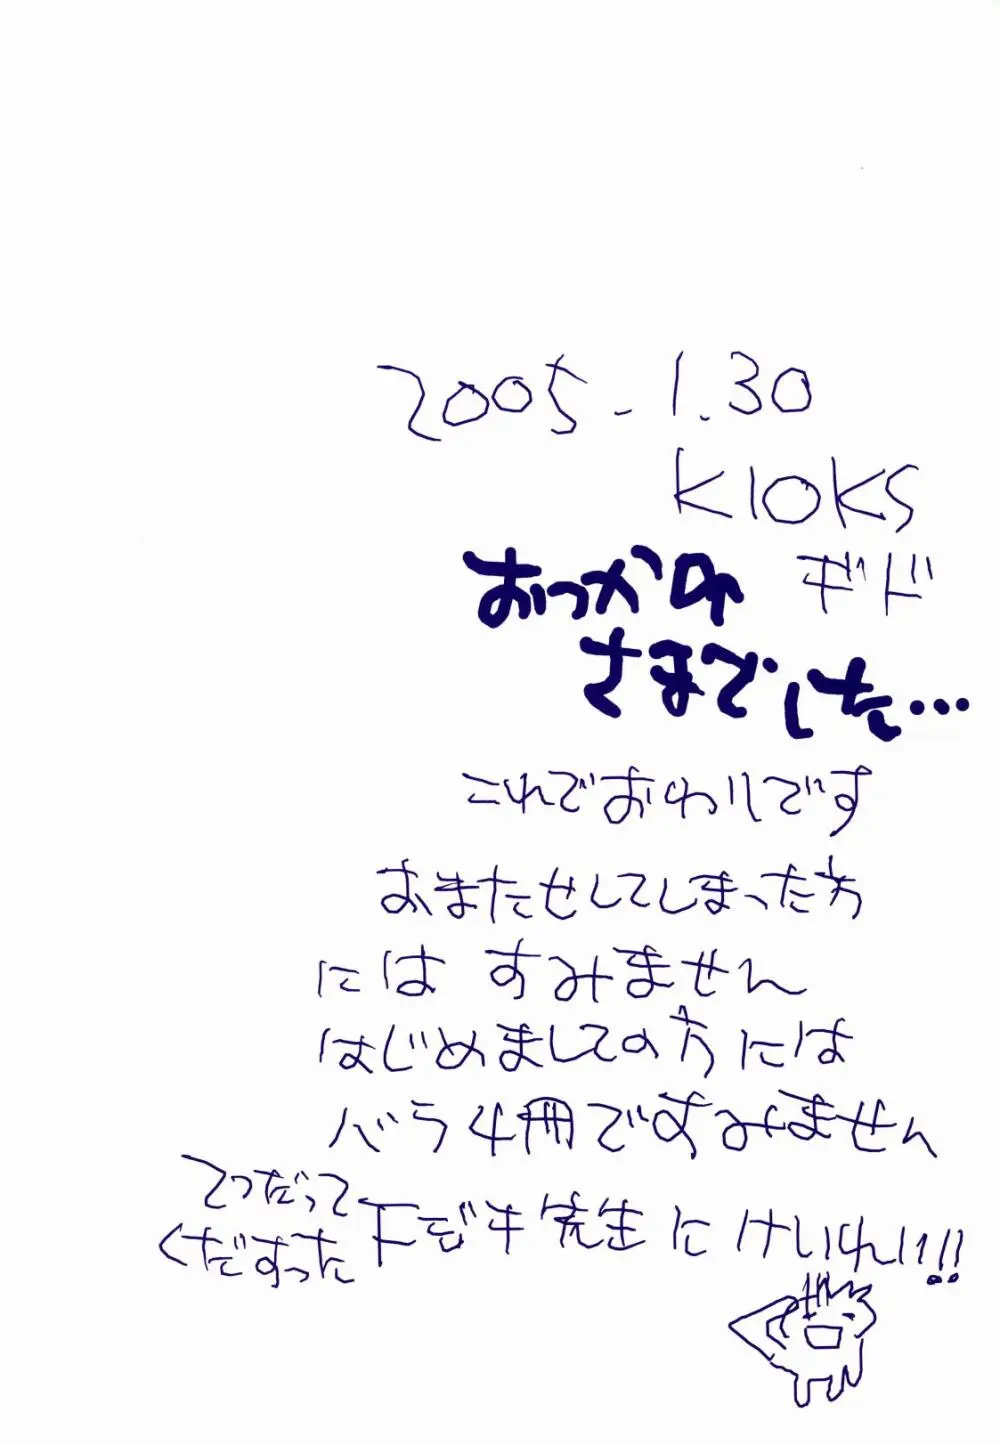 2005.1.30
KIOKS
ギド
おつかれ
さまでした…
これでおわりです
おまたせしてしまった方
には すみません
はじめましての方には
バラ4冊ですみません
てつだって
くだすった
下モヂキ先生にけいれい!!